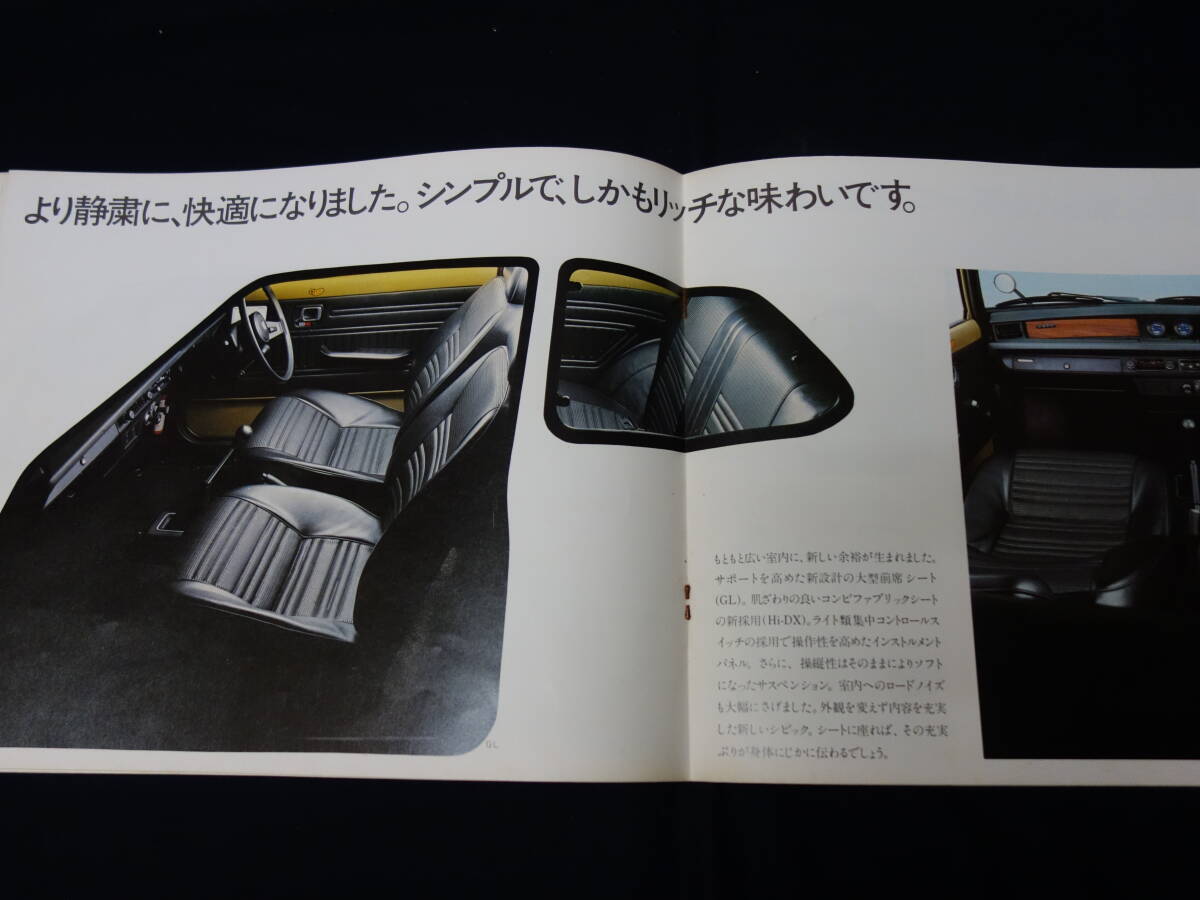 より静粛に、快適になりました。シンプルで、しかもリッチな味わいです。
もともと広い室内に、新しい余裕が生まれました。
サポートを高めた新設計の大型前席シート
(GL)。肌ざわりの良いコンビファブリックシート
の新採用(Hi-DX)。ライト類集中コントロールス
イッチの採用で操作性を高めたインストルメント
パネル。さらに、操縦性はそのままによりソフト
になったサスペンション。室内へのロードノイズ
も大幅にさげました。外観を変えず内容を充実
した新しいシビック。シートに座れば、その充実
ぶりが身体にじかに伝わるでしょう。
GL